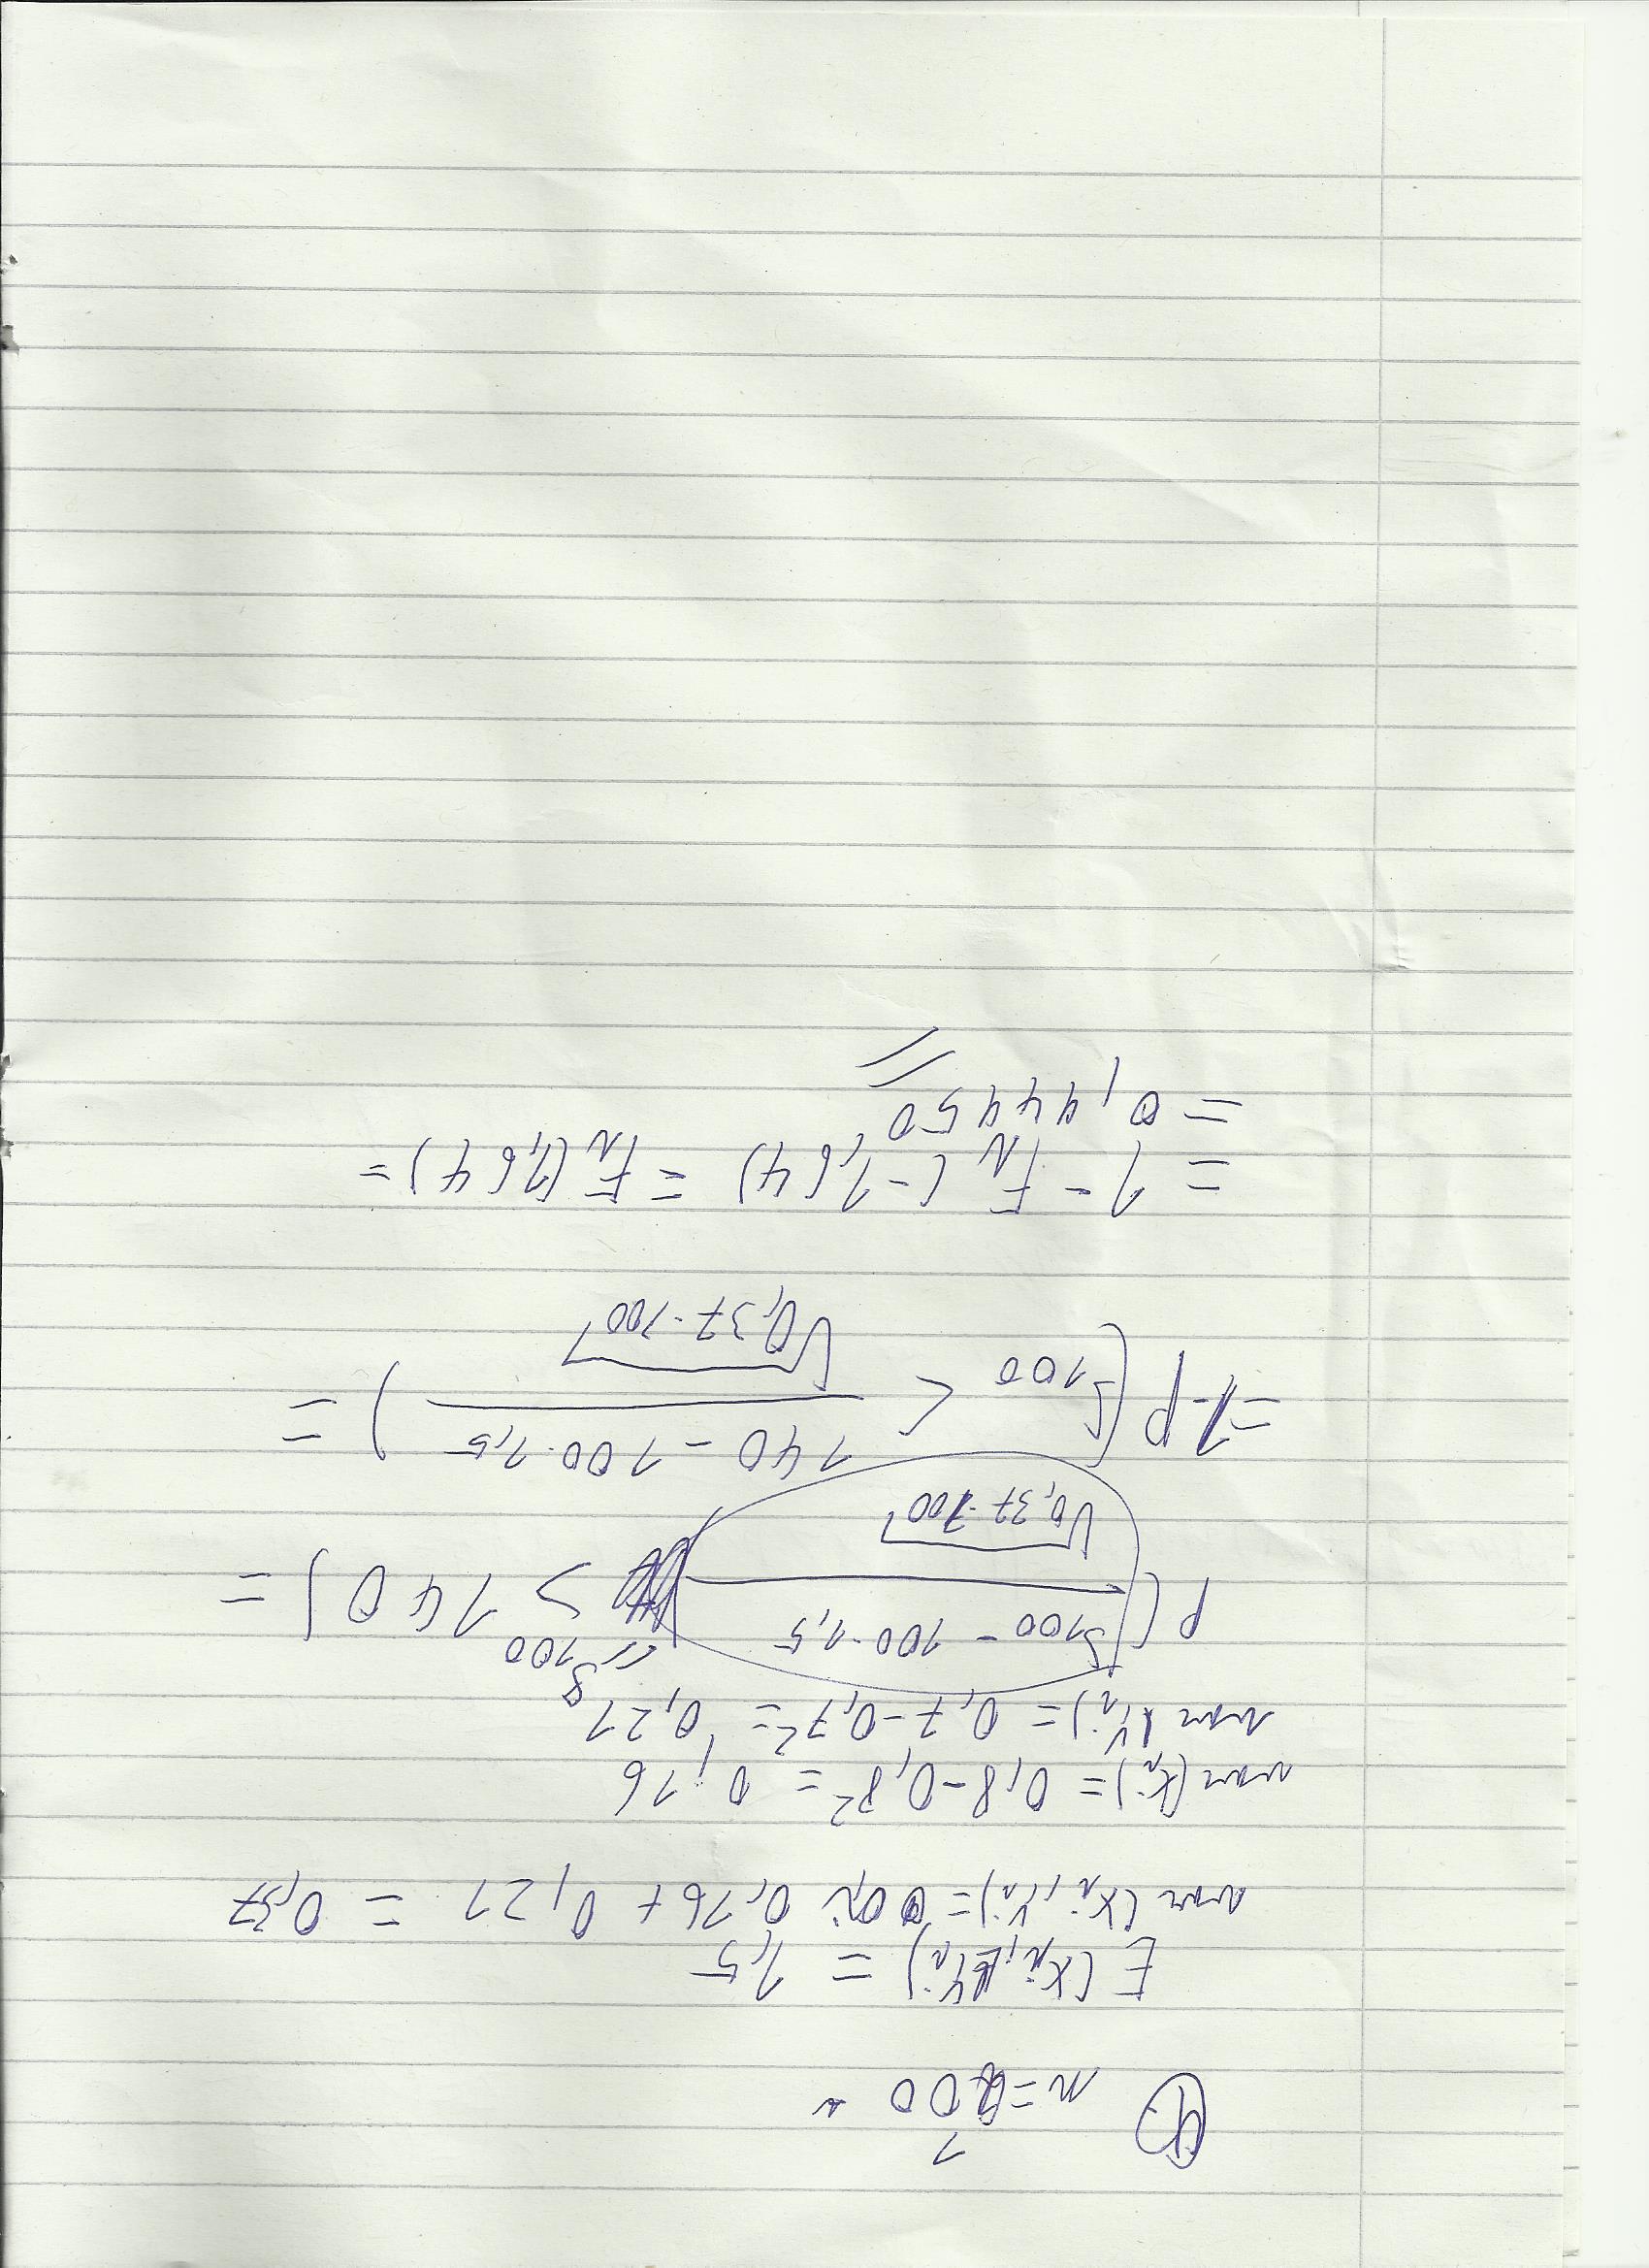 9. n=100
E(Xi,Yi) = 1,5
var(Xi,Yi)= 0,16+ 0,21 = 0,37
var(Xi)= 0,8-0,8²= 0,16
var(Yi)= 0,7-0,7²= 0,21
= S100
P( S100 - 100·1,5 > 140) =
√0,37·100
140 - 100·1,5
=1-P( S100 < ) =
√0,37·100
= 1 - FN (-1,64) = FN(1,64)=
= 0,94950